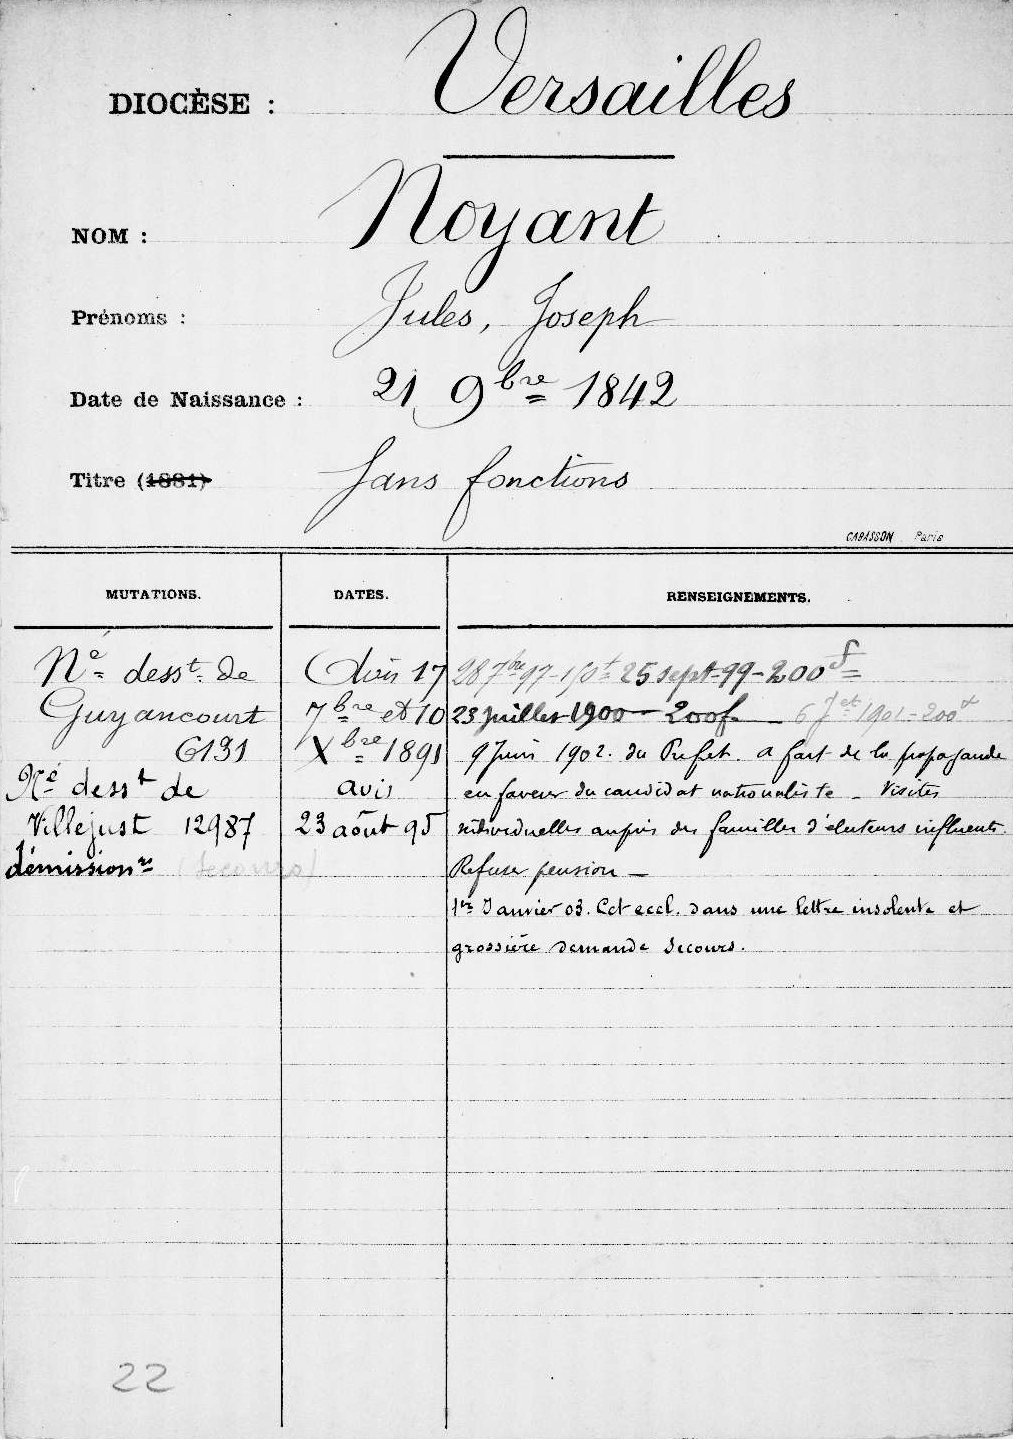 DIOCÈSE : Versailles
NOM : Noyant
Prénoms : Jules, Joseph
Date de Naissance : 21 9bre 1842
Titre (1881) Sans fonctions
CABASSON Paris
MUTATIONS. DATES. RENSEIGNEMENTS.
Né desst de Avis 17 28 7bre 97 - 150f 25 sept - 99 - 200f
Guyancourt 7bre et 10 23 juillet 1900 - 200f. - 6 Jet 1901 - 200f
6131 Xbre 1891 9 Juin 1902. du Préfet. a fait de la propagande
Né desst de avis en faveur du candidat nationaliste - Visites
Villejust 12987 23 août 95 individuelles auprès des familles d'électeurs influents.
démissionre (Secours) Refuser pension -
1er Janvier 03. Cct eccl. dans une lettre insolente et
grossière demande secours.
22